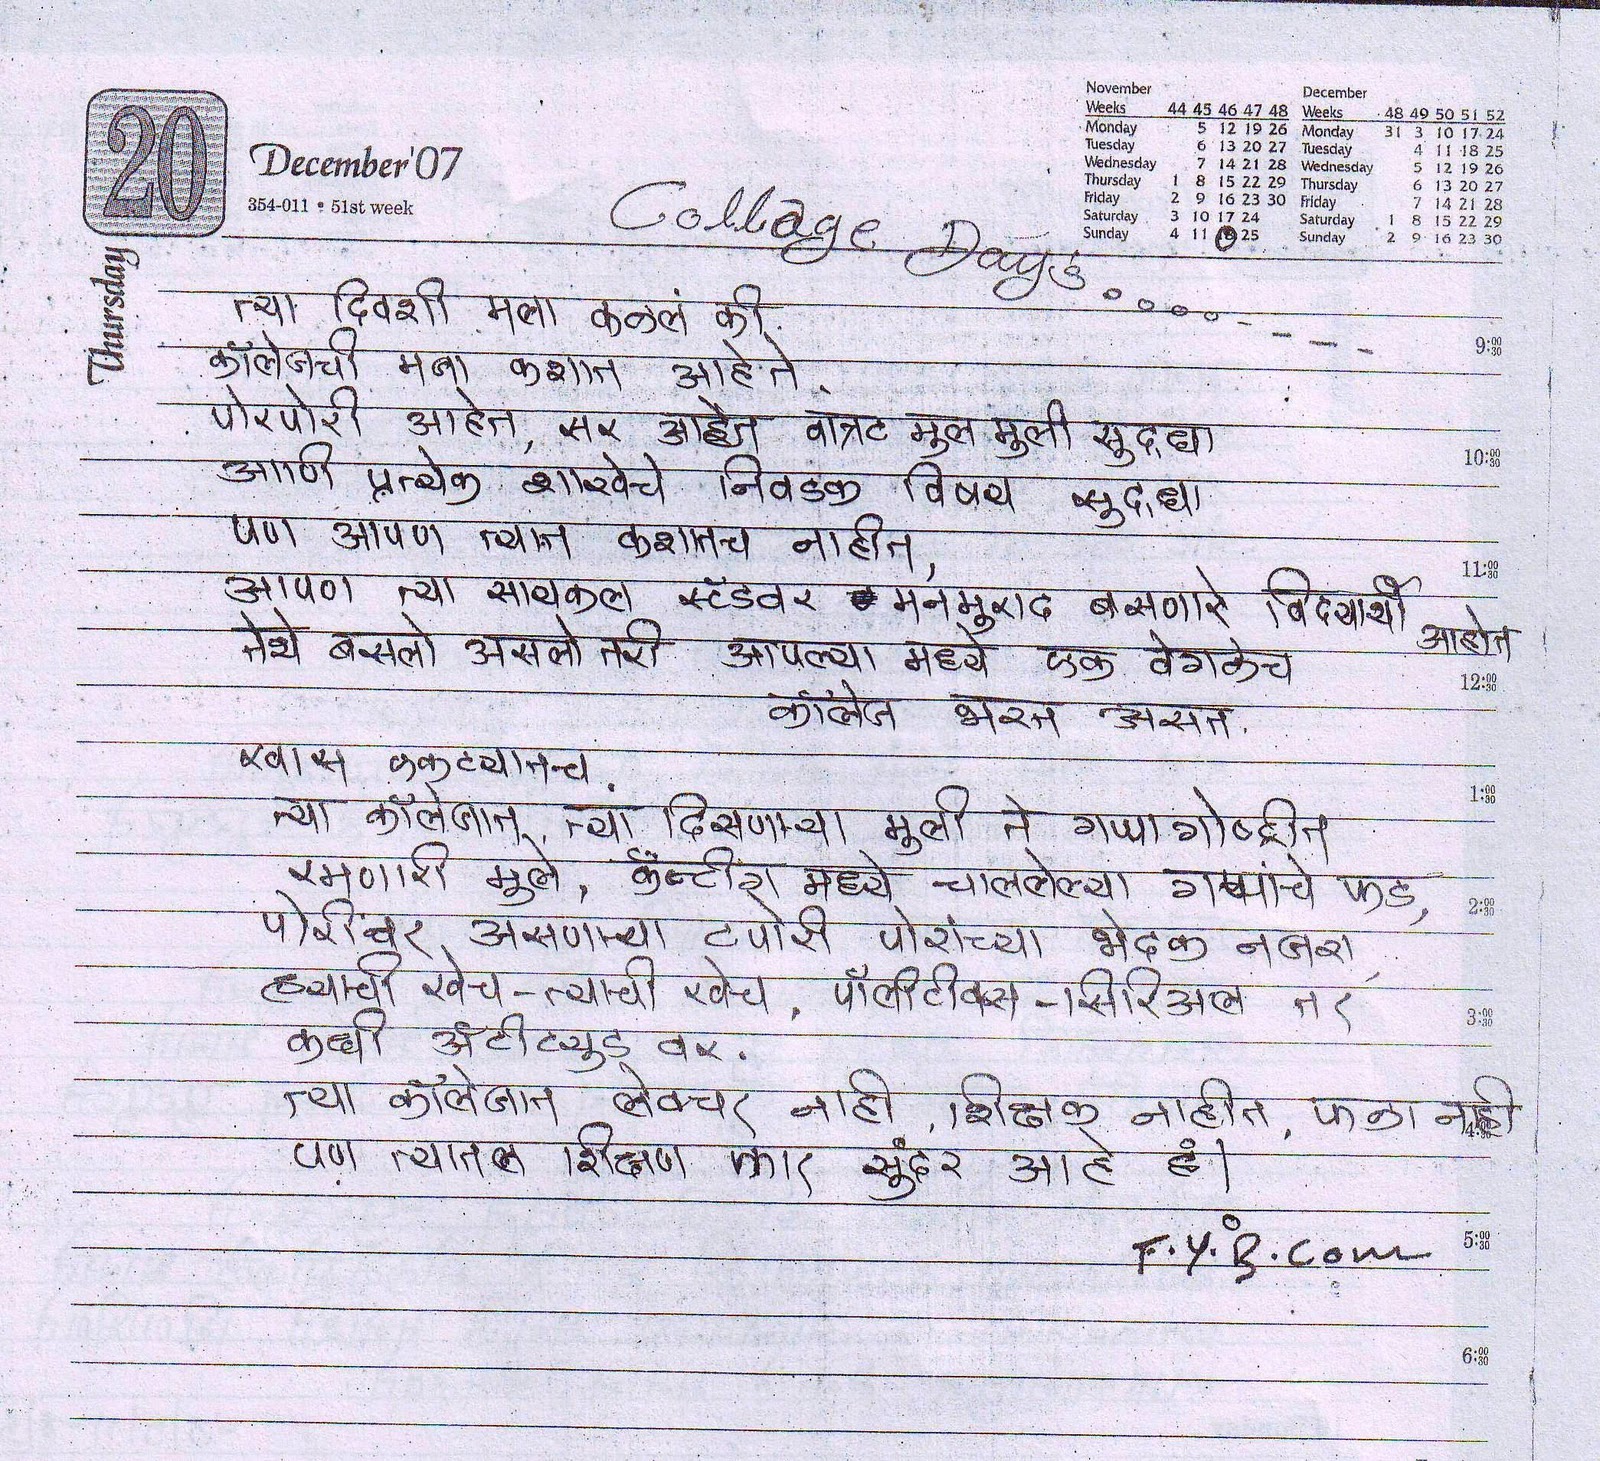 20
December'07
354-011 • 51st week
Thursday
November
Weeks 44 45 46 47 48
Monday 5 12 19 26
Tuesday 6 13 20 27
Wednesday 7 14 21 28
Thursday 1 8 15 22 29
Friday 2 9 16 23 30
Saturday 3 10 17 24
Sunday 4 11 18 25
December
Weeks 48 49 50 51 52
Monday 31 3 10 17 24
Tuesday 4 11 18 25
Wednesday 5 12 19 26
Thursday 6 13 20 27
Friday 7 14 21 28
Saturday 1 8 15 22 29
Sunday 2 9 16 23 30
Collage Days
त्या दिवशी मला कळलं की.
9:00 30
कॉलेजची मजा कशात आहे ते.
पोरपोरी आहेत, सर आहेत वात्रट मुल मुली सुद्धा
10:00 30
आणि प्रत्येक शाखेचे निवडक विषय सुद्धा
पण आपण त्यात कशातच नाहीत,
11:00 30
आपण त्या सायकल स्टँडवर मनमुराद बसणारे विद्यार्थी आहोत
तेथे बसलो असलो तरी आपल्या मध्ये एक वेगळेच
12:00 30
कॉलेज भरत असत.
खास एकट्यातच.
1:00 30
त्या कॉलेजात, त्या दिसणाऱ्या मुली ते गप्पा गोष्टीत
रमणारी मुले, कँन्टीग मध्ये चाललेल्या गप्पांचे फड,
2:00 30
पोरींवर असणाऱ्या टपोरी पोरांच्या भेदक नजरा,
ह्याची खेच-त्याची खेच, पॉलीटीक्स-सिरिअल तर
3:00 30
कधी अँटीट्युड वर.
त्या कॉलेजात लेक्चर नाही, शिक्षक नाहीत, फळा नाही
4:00 30
पण त्यातल शिक्षण फार सुंदर आहे हं।
F.Y.B.Com
5:00 30
6:00 30